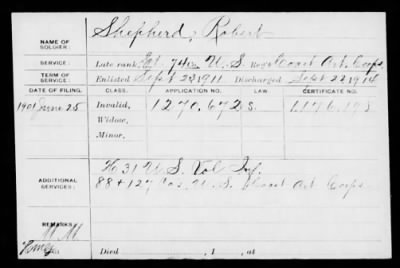 NAME OF SOLDIER: Shepherd, Robert
SERVICE: Late rank, 74 Co. U. S. Coast Art. Corps
TERM OF SERVICE: Enlisted Sept 23 1911 Discharged Sept 22 1914
DATE OF FILING. CLASS. APPLICATION NO. LAW CERTIFICATE NO.
1901 June 25 Invalid, 1270.672 S. 1.176.198
Widow,
Minor,
ADDITIONAL SERVICES: H 31 U S. Vol Inf.
88 + 127 Cos. U. S. Coast Art Corps
REMARKS:
Died , 1 , at